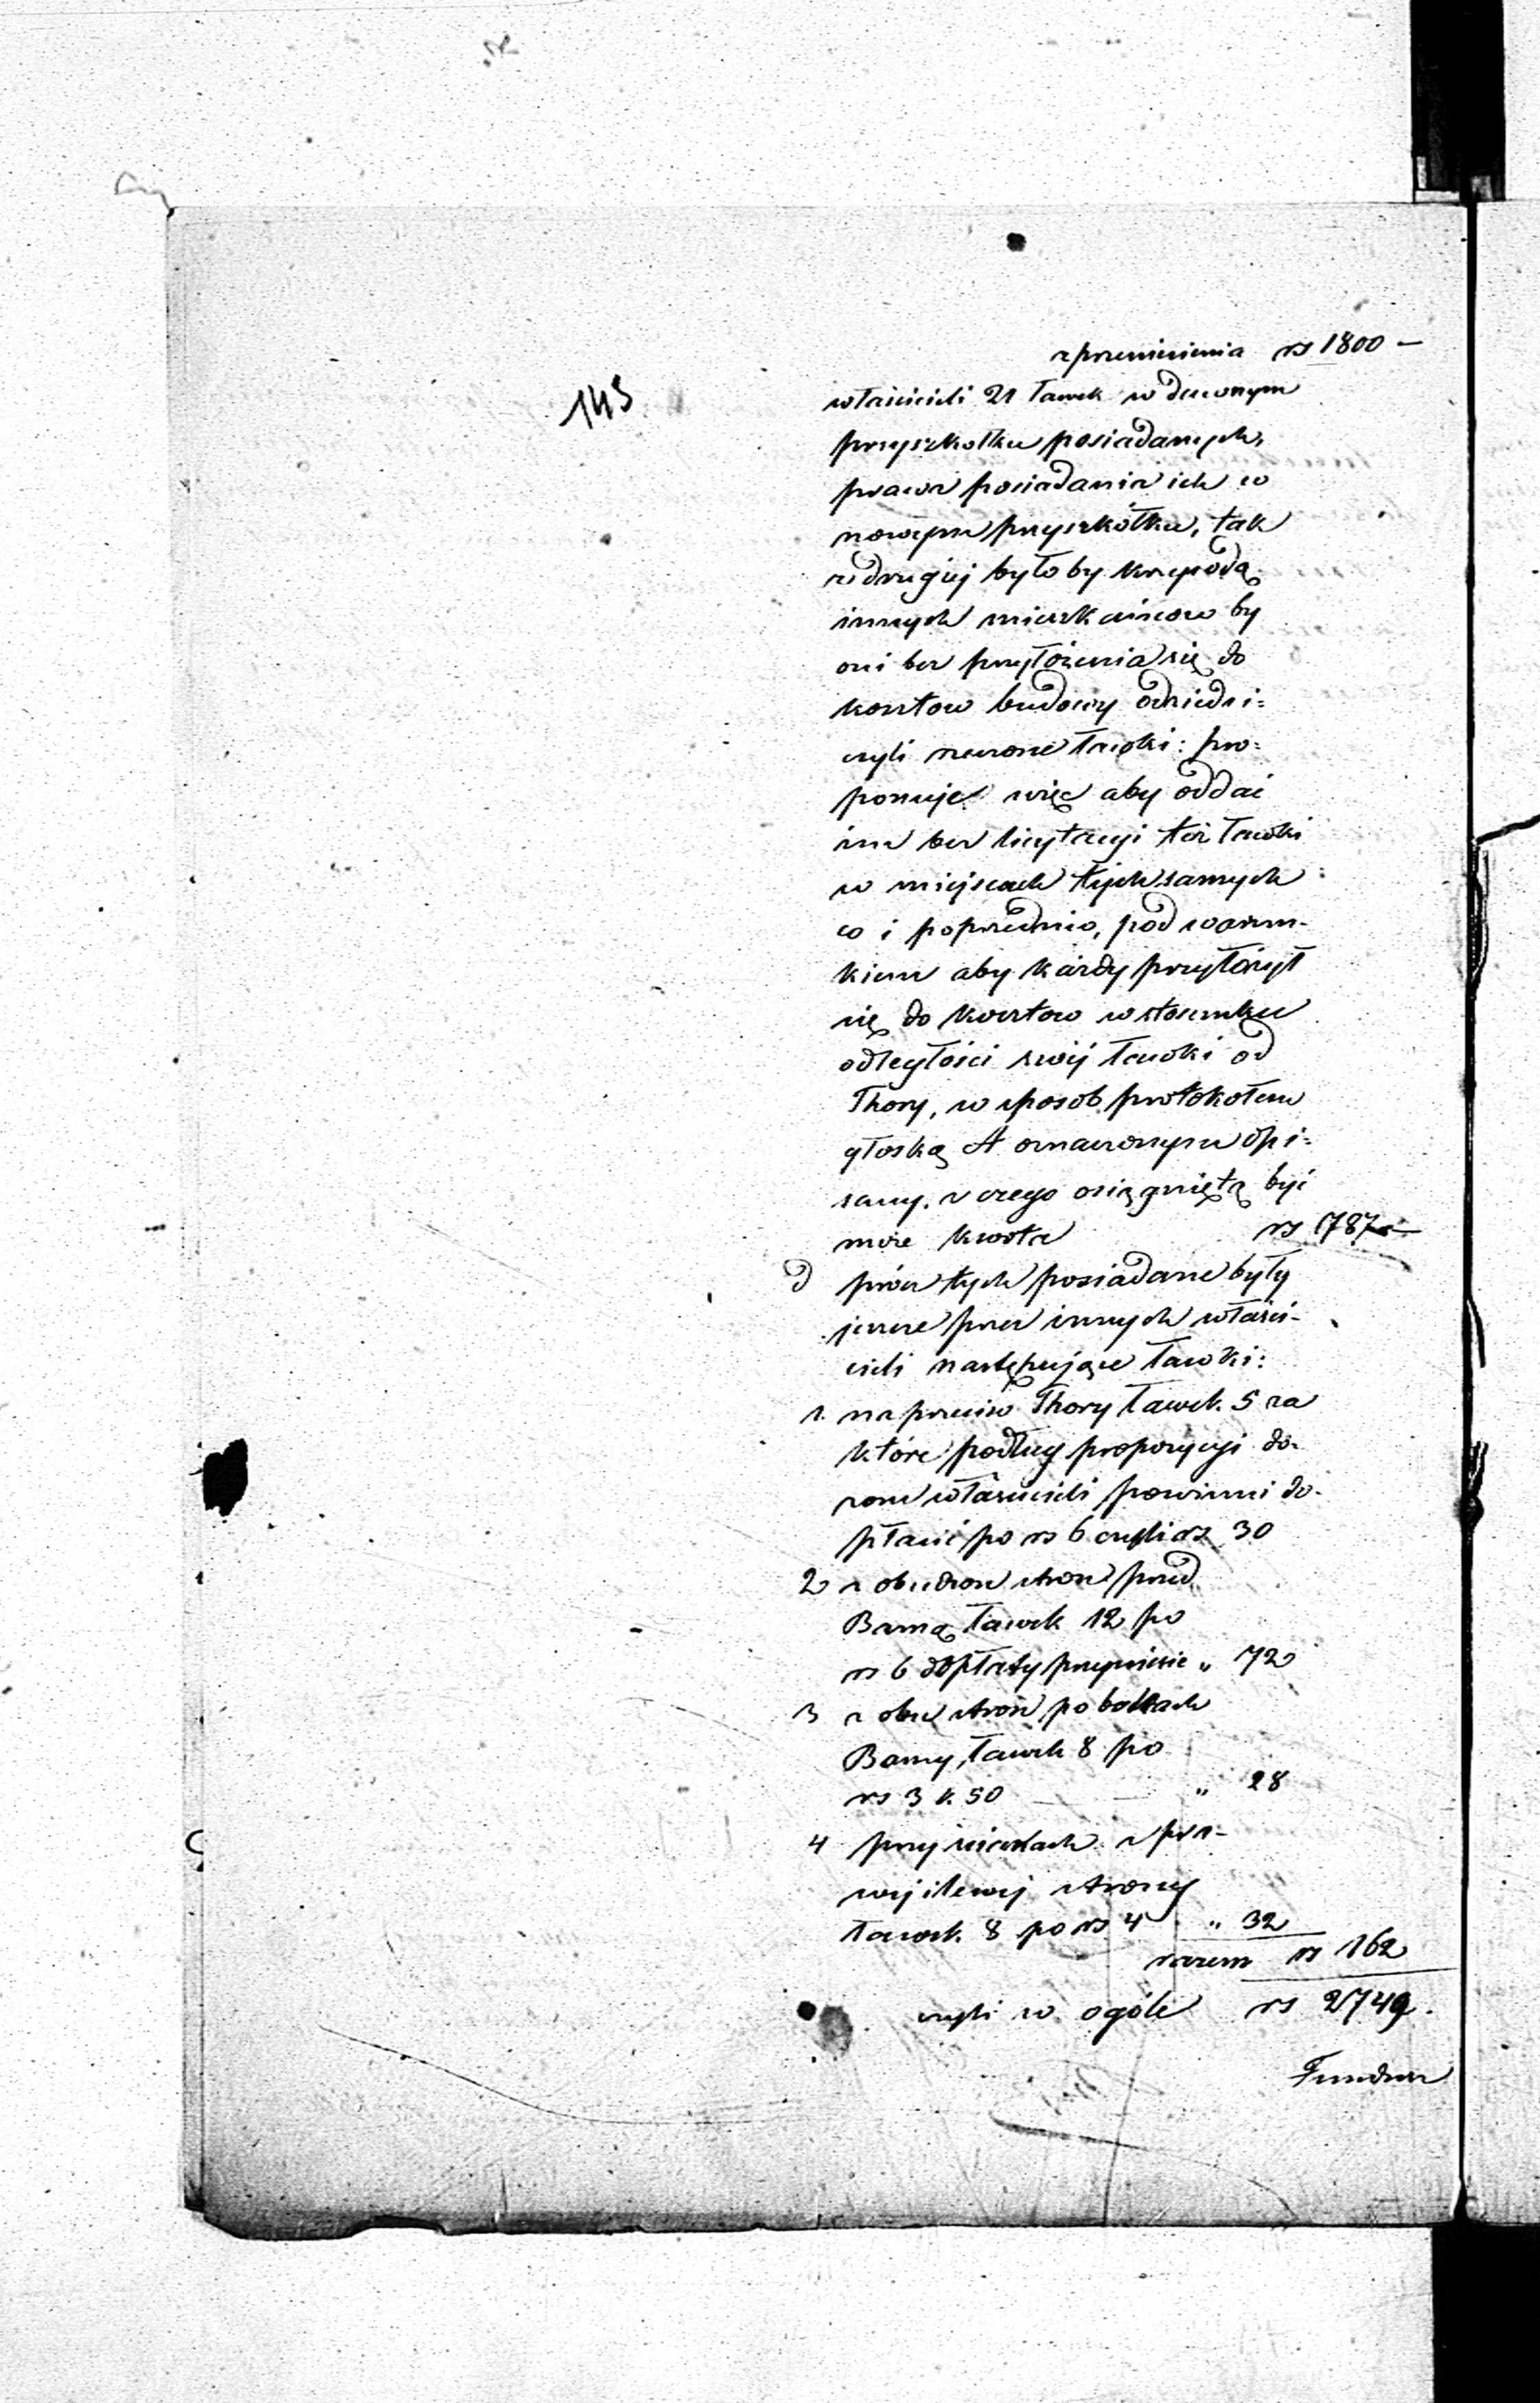 z przeniesienia rs 1800 —
145
właścicieli 21 ławek w dawnym
przyszkołku posiadanych,
prawa posiadania ich w
nowym przyszkółku, tak
z drugiej było by krzywdą
innych mieszkańcow by
oni bez przyłożenia się do
kosztow budowy odziedzi=
czyli rzeczone ławki: pro=
ponuje więc aby oddać
im bez licytacyi też ławki
w miejscach tych samych
co i poprzednio, pod warun-
kiem aby każdy przyłożył
się do kosztow w stosunku
odległości swéj ławki od
Thory, w sposob protokołem
głoską A oznaczonym opi=
sany, z czego osiągniętą być
może kwota rs 787 —
d prócz tych posiadane były
jeszcze przez innych właści-
cieli następujące ławki:
1. naprzeciw Thory ławek 5 za
które podług propozycyi do-
zoru właściciele powinni do-
płacić po rs 6 czyli rs 30
2 z obudwu stron przed
Bamą ławek 12 po
rs 6 dopłaty przyniesie „ 72
3 z obu stron po bokach
Bamy, ławek 8 po
rs 3 k. 50 — „ 28
4 przy ścianach z pra-
wej i lewej strony
ławek 8 po rs 4 „ 32
razem rs 162
czyli w ogóle rs 2749.
Fundusz